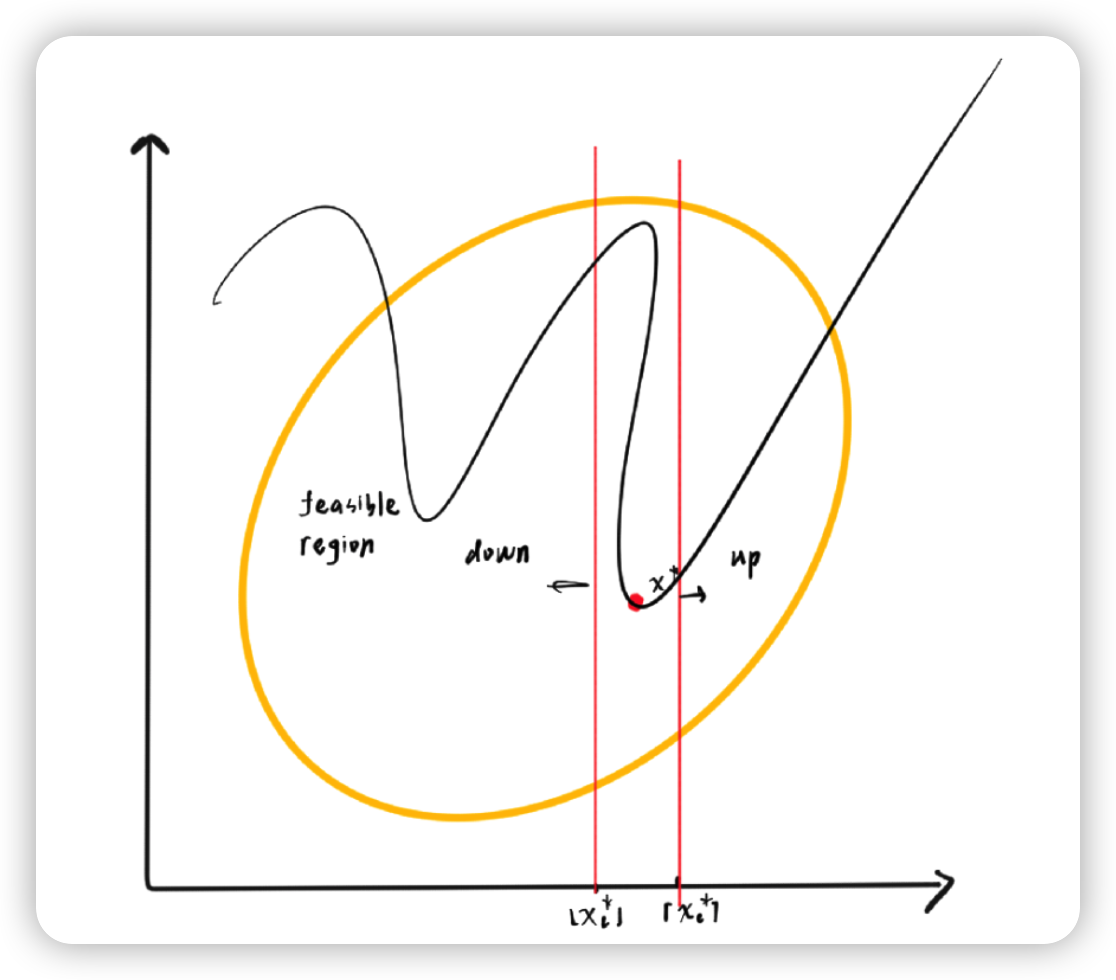 feasible
region
down
up
x*
⌊xᵢ*⌋
⌈xᵢ*⌉